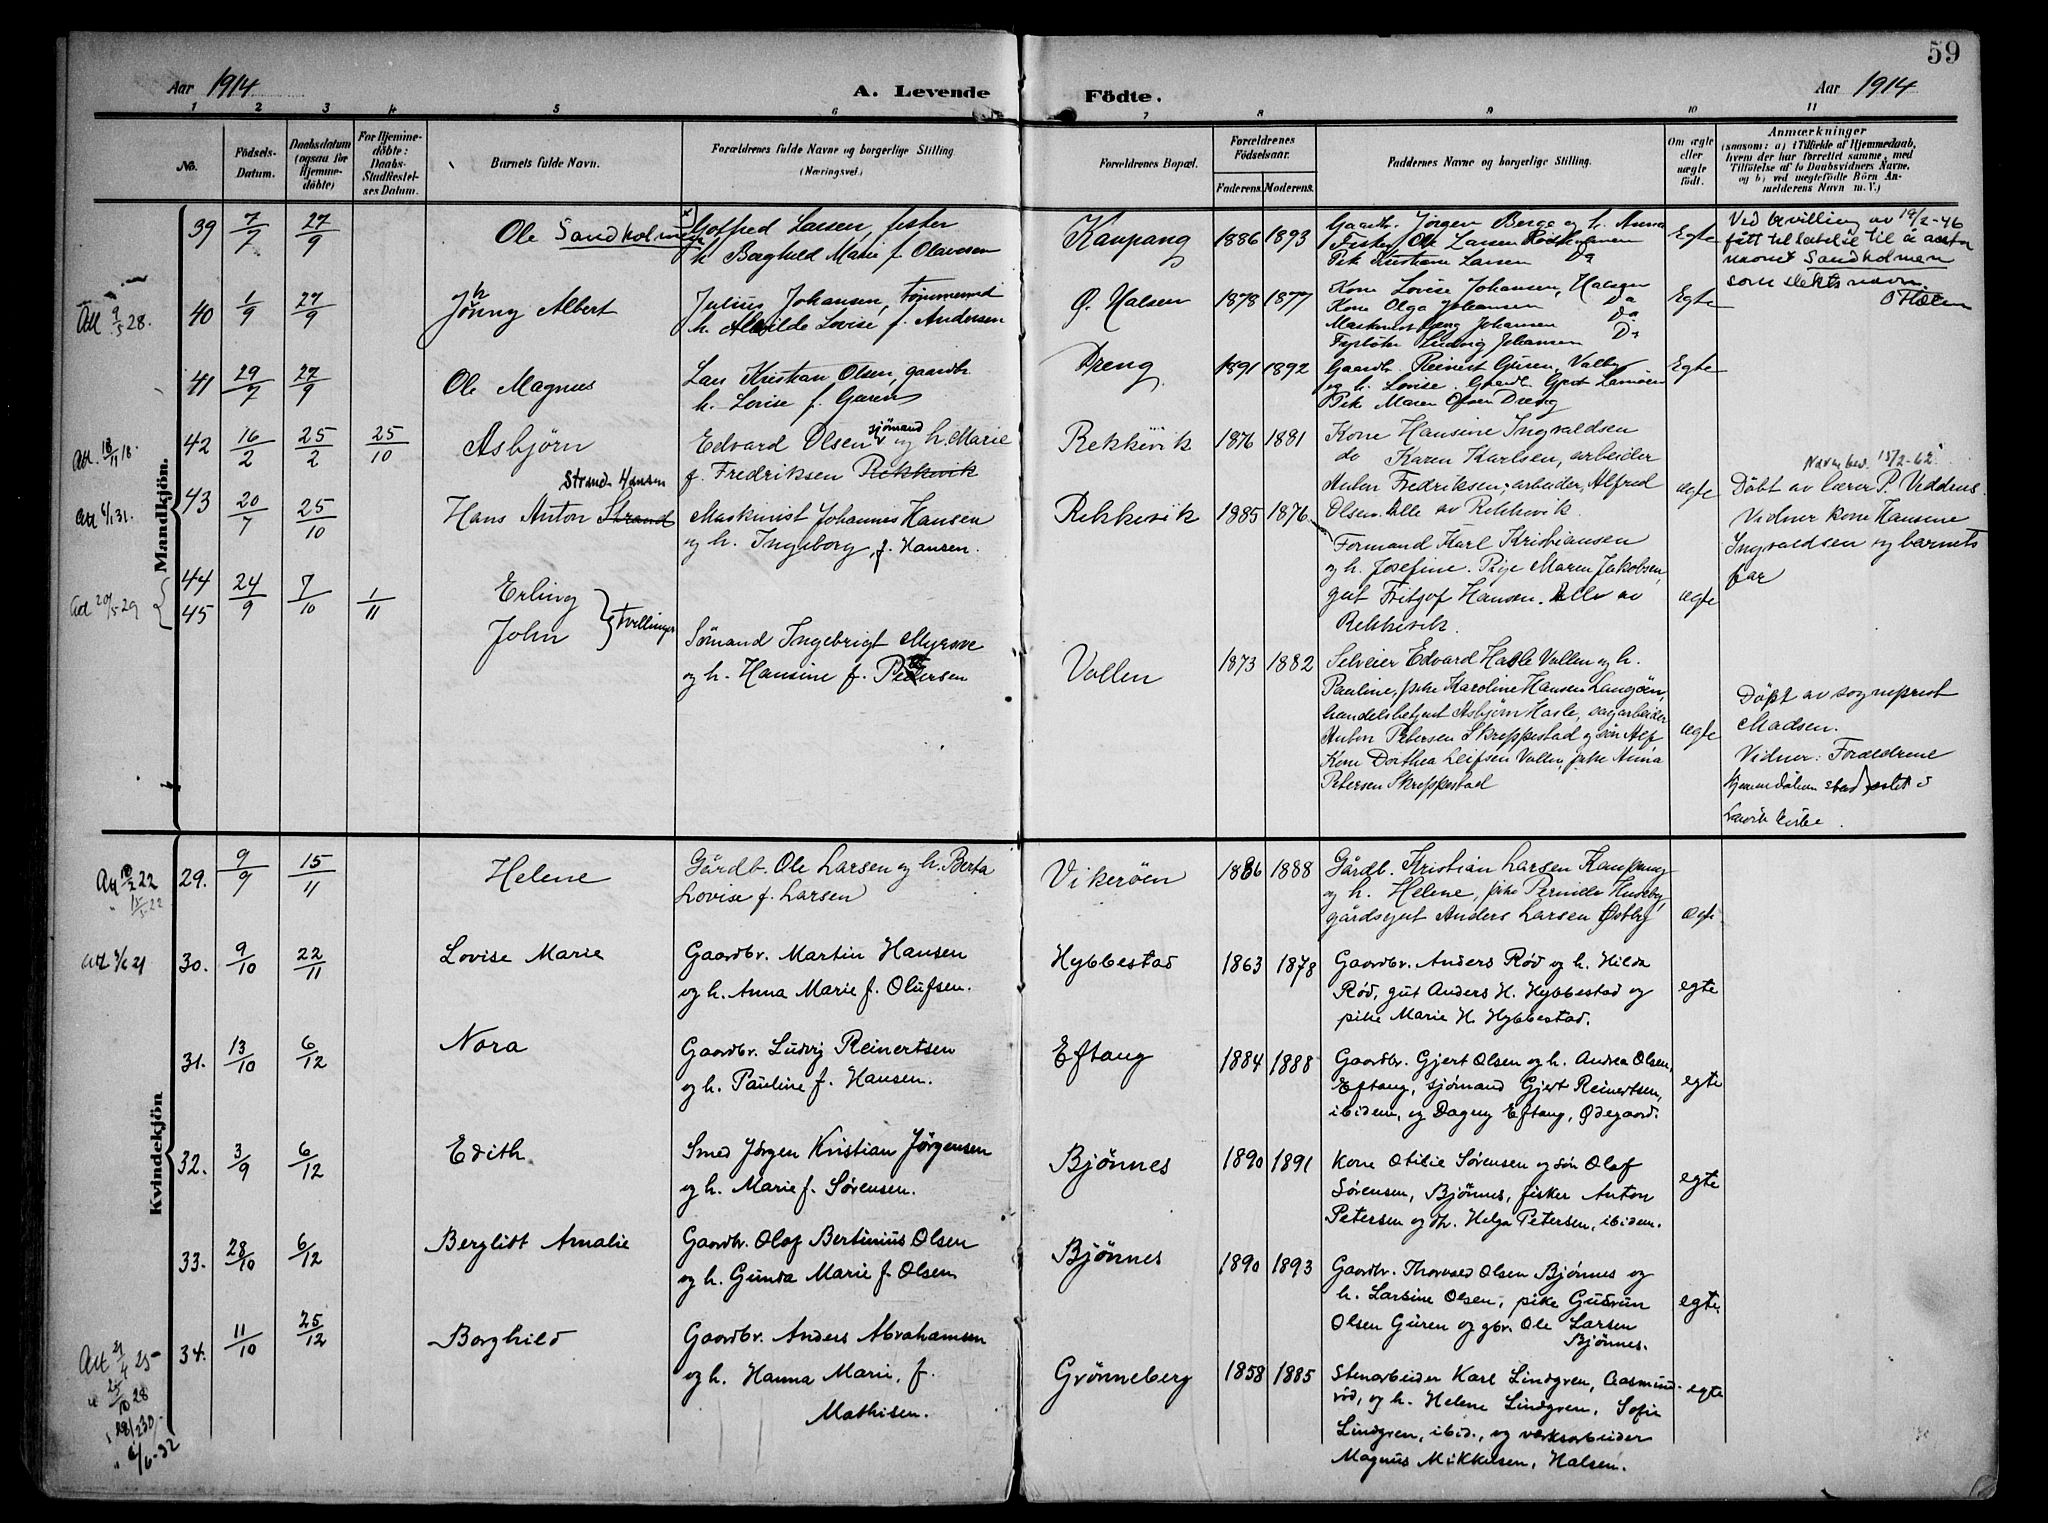 59
Aar 1914 A. Levende Födte. Aar 1914
1 2 3 4 5 6 7 8 9 10 11
No.
Födsels-
Datum.
Daabsdatum
(ogsaa for
Hjemme-
döbte)
For Hjemme-
döbte:
Daabs-
Stadfæstel-
ses Datum.
Barnets fulde Navn.
Forældrenes fulde Navne og borgerlige Stilling
(Næringsvei.)
Forældrenes Bopæl.
Forældrenes
Födselsaar.
Faderens. Moderens.
Faddernes Navne og borgerlige Stilling.
Om ægte
eller
uægte
födt.
Anmærkninger
(saasom: a) i Tilfælde af Hjemmedaab,
hvem der har forrettet samme, med
Tilföielse af to Daabsvidners Navne,
og b) ved uægtefödte Börn An-
melderens Navn m. V.)
Mandkjön.
39 7/7 27/9 Ole Sandholmen
Gotfred Larsen, fisker
h. Borghild Marie f. Olavesen
Kaupang 1886 1893
Gaardb. Jörgen Berge og h. Anna
Fisker Ole Larsen
Pike Kristiane Larsen Do
Egte
Ved bevilling av 19/2-46
fått tillatelse til å anta
navnet Sandholmen
som slektsnavn.
Att 9/5 28.
40 1/9 27/9 Johnny Albert
Julius Johansen, tømmermd
h. Alvilde Lovise f. Andersen
Ø. Halsen 1878 1877
Kone Lovise Johansen, Halsen
Kone Olga Johansen Do
Maskinist Georg Johansen Do
Ludvig Johansen Do
Egte
41 29/7 27/9 Ole Magnus
Lars Kristian Olsen, gaardb.
h. Lovise f. Guren
Dreng 1891 1892
Gaardb. Reinert Guren, Valby
og h. Lovise. Gaardb. Gjert Lamöen
Pike Maren Olsen Dreng
Egte
Att. 18/11 18.
42 16/2 25/2 25/10 Asbjörn
Edvard Olsen sjömand og h. Marie
f. Fredriksen Rekkevik
Rekkevik 1876 1881
Kone Hansine Ingvaldsen
do Karen Karlsen, arbeider
Anton Fredriksen, arbeider, Alfred
Olsen. Alle av Rekkevik.
ægte
Navnbev. 15/2-62
Döbt av lærer P. Viddnes
Vidner kone Hansine
Ingvaldsen og barnets
far
Att 6/1 31.
43 20/7 25/10 Hans Anton Strand
Strand-Hansen
Maskinist Johannes Hansen
og h. Ingeborg, f. Hansen.
Rekkevik 1885 1876
Formand Karl Kristiansen
og h. Josefine. Pige Maren Jakobsen,
gut Fritjof Hansen. Alle av
Rekkevik.
ægte
Att 20/5 29
44
45
24/9 7/10 1/11 Erling
John
Tvillinger
Sömand Ingebrigt Myrsve
og h. Hansine f. Pettersen
Vallen 1873 1882
Selveier Edvard Hasle Vallen og h.
Pauline, pike Karoline Hansen Langöen,
handelsbetjent Asbjörn Hasle, sagarbeider
Anton Petersen Skreppestad og sön Alf
Kone Dorthea Leifsen Vallen, pike Anna
Petersen Skreppestad
ægte
Döpt av sogneprest
Madsen.
Vidner: Foreldrene
Hjemmedåben stadfæstet i
Larvik kirke.
Kvindekjön
Att 10/2 22
" 15/5 22
29. 9/9 15/11 Helene
Gårdb. Ole Larsen og h. Berta
Lovise f. Larsen
Vikeröen 1886 1888
Gårdb. Kristian Larsen Kaupang
og h. Helene, pike Pernille Huseby,
gårdsgut Anders Larsen Østby
Att 3/6 21
30. 9/10 22/11 Lovise Marie
Gaardbr. Martin Hansen
og h. Anna Marie f. Olufsen.
Hybbestad 1863 1878
Gaardbr. Anders Rød og h. Hilda
Rød, gut Anders H. Hybbestad og
pike Marie H. Hybbestad.
egte
31. 13/10 6/12 Nora
Gaardbr. Ludvig Reinertsen
og h. Pauline f. Hansen.
Eftang 1884 1888
Gaardbr. Gjert Olsen og h. Andrea Olsen,
Eftang, sjømand Gjert Reinertsen,
ibidem, og Dagny Eftang, Ødegaard.
egte
32. 3/9 6/12 Edith
Smed Jørgen Kristian Jørgensen
og h. Marie f. Sørensen.
Bjønnes 1890 1891
Kone Otilie Sørensen og søn Olaf
Sørensen, Bjønnes, fisker Anton
Petersen og h. Helga Petersen, ibidem.
egte
33. 28/10 6/12 Berglidt Amalie
Gaardbr. Olaf Bertinius Olsen
og h. Gunda Marie f. Olsen
Bjønnes 1890 1893
Gaardbr. Thorvald Olsen Bjønnes og
h. Larsine Olsen, pike Gudrun
Olsen Guren og gbr. Ole Larsen
Bjønnes.
egte
Att 21/4 25-
" 25/10 28
" 28/2 30/-
" 6/6-32
34. 11/10 25/12 Borghild
Gaardbr. Anders Abrahamsen
og h. Hanna Marie, f.
Mathisen.
Grønneberg 1858 1885
Stenarbeider Karl Lindgren, Aasmund-
rød, og h. Helene Lindgren, Sofie
Lindgren, ibid., og verksarbeider
Magnus Mikkelsen, Halsen.
egte